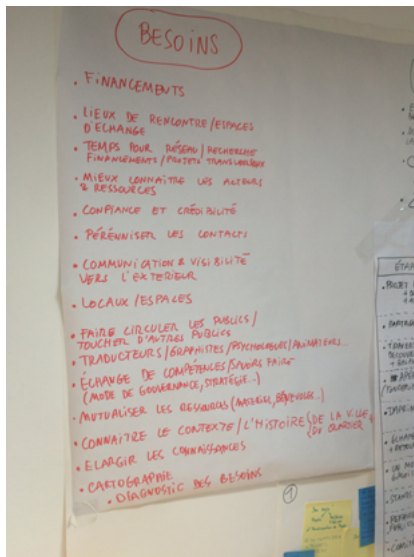 BESOINS
• FINANCEMENTS
• LIEUX DE RENCONTRE/ESPACES
D'ECHANGE
• TEMPS POUR RÉSEAU/RECHERCHE
FINANCEMENTS/PROJETS TRANSVERSAUX
• MIEUX CONNAÎTRE LES ACTEURS
& RESSOURCES
• CONFIANCE ET CRÉDIBILITÉ
• PÉRÉNNISER LES CONTACTS
• COMMUNICATION & VISIBILITÉ
VERS L'EXTERIEUR
• LOCAUX/ESPACES
• FAIRE CIRCULER LES PUBLICS/
TOUCHER D'AUTRES PUBLICS
• TRADUCTEURS/GRAPHISTES/PSYCHOLOGUES/ANIMATEURS...
• ÉCHANGE DE COMPÉTENCES/SAVOIRS FAIRE
(MODE DE GOUVERNANCE, STRATÉGIE...)
• MUTUALISER LES RESSOURCES (MATERIEL, BÉNÉVOLES...)
• CONNAÎTRE LE CONTEXTE/L'HISTOIRE (DE LA VILLE
DU QUARTIER
• ELARGIR LES CONNAISSANCES
• CARTOGRAPHIE
• DIAGNOSTIC DES BESOINS
1